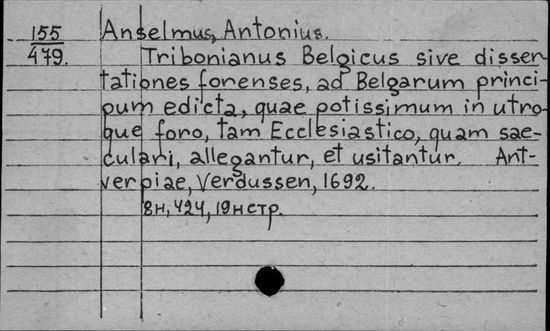 155
479.
Anselmus, Antonius.
Tribonianus Belgicus sive disser-
tationes forenses, ad Belgarum princi-
pum edicta, quae potissimum in utro-
que foro, tam Ecclesiastico, quam sae-
culari, allegantur, et usitantur. Ant-
verpiae, Verdussen, 1692.
8н, 424, 19н стр.